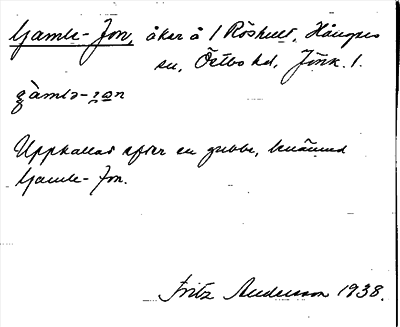 Gamle-Jon, åker å 1 Röshult, Hångers
sn, Östbo hd, Jönk. l.
gàmlə-jon
Uppkallad efter en gubbe, benämnd
Gamle-Jon.
Fritz Andersson 1938.